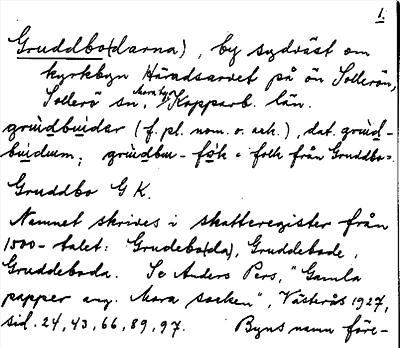 1.
Gruddbo(darna), by sydväst om
kyrkbyn Häradsarvet på ön Sollerön,
Sollerö sn, Mora tgn, Kopparb. län.
grùdbùɪdar (f. pl. nom. o. ack.), dat. grùd-
bùɪdum; grùdbu-fok = folk från Gruddbo.
Gruddbo G K.
Namnet skrives i skatteregister från
1500-talet: Grudebo(da), Gruddebode,
Gruddeboda. Se Anders Pers, "Gamla
papper ang. Mora socken", Västerås 1927,
sid. 24, 43, 66, 89, 97. Byns namn före-